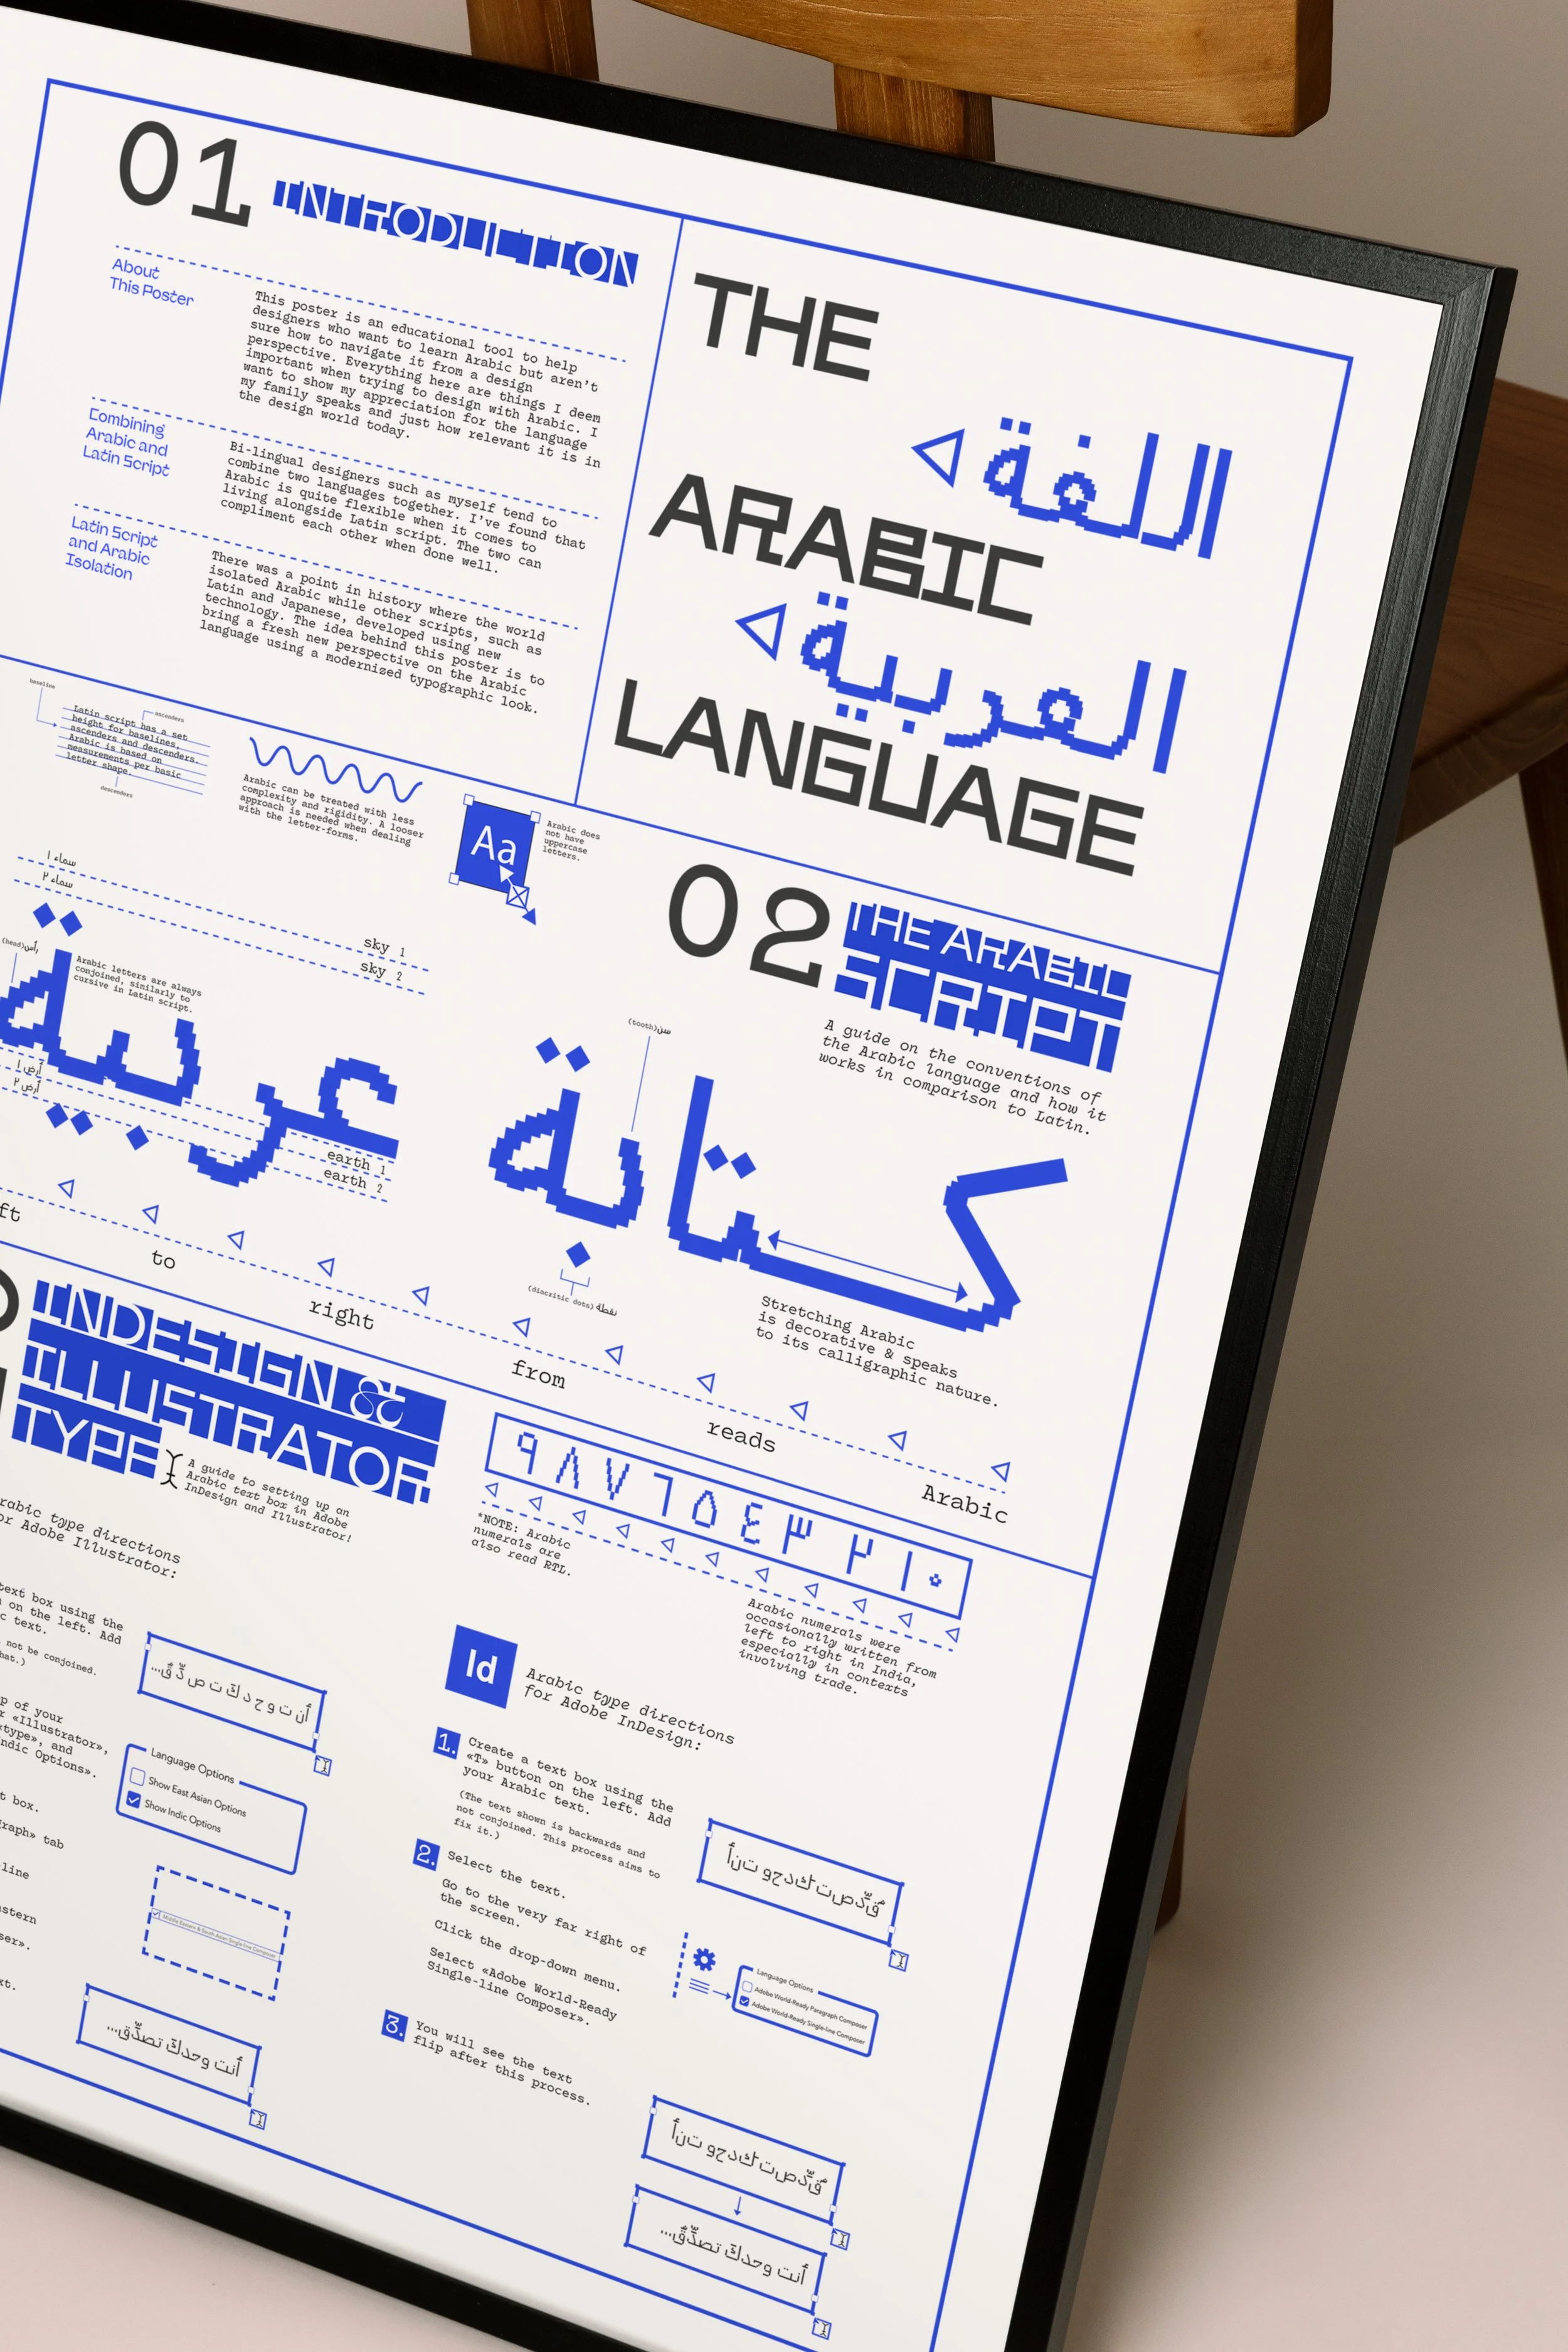 01 INTRODUCTION
About
This Poster
This poster is an educational tool to help
designers who want to learn Arabic but aren't
sure how to navigate it from a design
perspective. Everything here are things I deem
important when trying to design with Arabic. I
want to show my appreciation for the language
my family speaks and just how relevant it is in
the design world today.
Combining
Arabic and
Latin Script
Bi-lingual designers such as myself tend to
combine two languages together. I've found that
Arabic is quite flexible when it comes to
living alongside Latin script. The two can
compliment each other when done well.
Latin Script
and Arabic
Isolation
There was a point in history where the world
isolated Arabic while other scripts, such as
Latin and Japanese, developed using new
technology. The idea behind this poster is to
bring a fresh new perspective on the Arabic
language using a modernized typographic look.
THE
اللغة
ARABIC
العربية
LANGUAGE
baseline
ascendees
Latin script has a set
height for baselines,
ascenders and descenders.
Arabic is based on
measurements per basic
letter shape.
descendees
Arabic can be treated with less
complexity and rigidity. A looser
approach is needed when dealing
with the letter-forms.
Aa
Arabic does
not have
uppercase
letters.
02 THE ARABIC
SCRIPT
A guide on the conventions of
the Arabic language and how it
works in comparison to Latin.
سماء ١
سماء ٢
sky 1
sky 2
(head)رأس
Arabic letters are always
conjoined, similarly to
cursive in Latin script.
عربية
أرض ١
أرض ٢
earth 1
earth 2
(tooth)سن
كتابة
(diacritic dots)نقطة
Stretching Arabic
is decorative & speaks
to its calligraphic nature.
to
right
from
reads
Arabic
INDESIGN &
ILLUSTRATOR
TYPE
A guide to setting up an
Arabic text box in Adobe
InDesign and Illustrator!
٩ ٨ ٧ ٦ ٥ ٤ ٣ ٢ ١ ٠
*NOTE: Arabic
numerals are
also read RTL.
Arabic numerals were
occasionally written from
left to right in India,
especially in contexts
involving trade.
Arabic type directions
for Adobe Illustrator:
text box using the
on the left. Add
text.
not be conjoined.
أ ن ت و ح د كَ ت ص دِّ قُ...
of your
«Illustrator»,
«type», and
Indic Options».
Language Options
Show East Asian Options
Show Indic Options
box.
tab
line
Middle Eastern & South Asian Single-line Composer
أنت وحدكَ تصدِّق...
Id
Arabic type directions
for Adobe InDesign:
1. Create a text box using the
«T» button on the left. Add
your Arabic text.
(The text shown is backwards and
not conjoined. This process aims to
fix it.)
2. Select the text.
Go to the very far right of
the screen.
Click the drop-down menu.
Select «Adobe World-Ready
Single-line Composer».
Language Options
Adobe World-Ready Paragraph Composer
Adobe World-Ready Single-line Composer
3. You will see the text
flip after this process.
أنت وحدكَ تصدِّقُ...